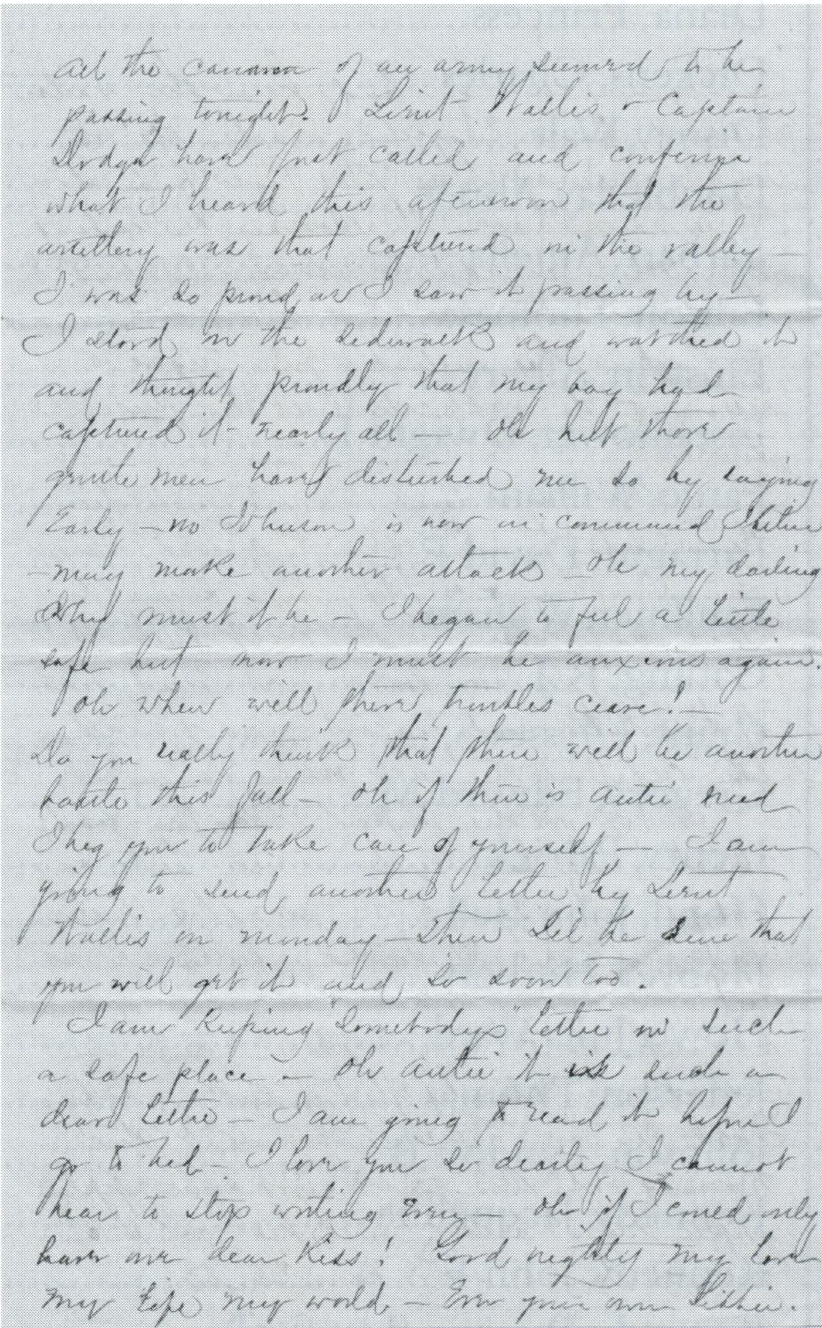 all the cannon of an army seemed to be
passing tonight. Lieut Wallis & Captain
Dodge have just called and confirm
what I heard this afternoon that the
artillery was that captured in the valley –
I was so proud as I saw it passing by –
I stood on the sidewalk and watched it
and thought proudly that my boy had
captured it nearly all – Oh but those
gentlemen have disturbed me so by saying
Early – no Johnson is now in command &
may make another attack – Oh my darling
Why must it be – I began to feel a little
safe but now I must be anxious again.
Oh when will these troubles cease! –
Do you really think that there will be another
battle this Fall – oh if there is Autie
I beg you to take care of yourself – I am
going to send another letter by Lieut
Wallis on monday – then I'll be sure that
you will get it and so soon too.
I am keeping "Somebodys" letter in such
a safe place – Oh Autie it is such a
dear letter – I am going to read it before I
go to bed – I love you so dearly I cannot
bear to stop writing even – oh if I could only
have one dear kiss! Good night my love
my life my world – Ever your own Libbie.